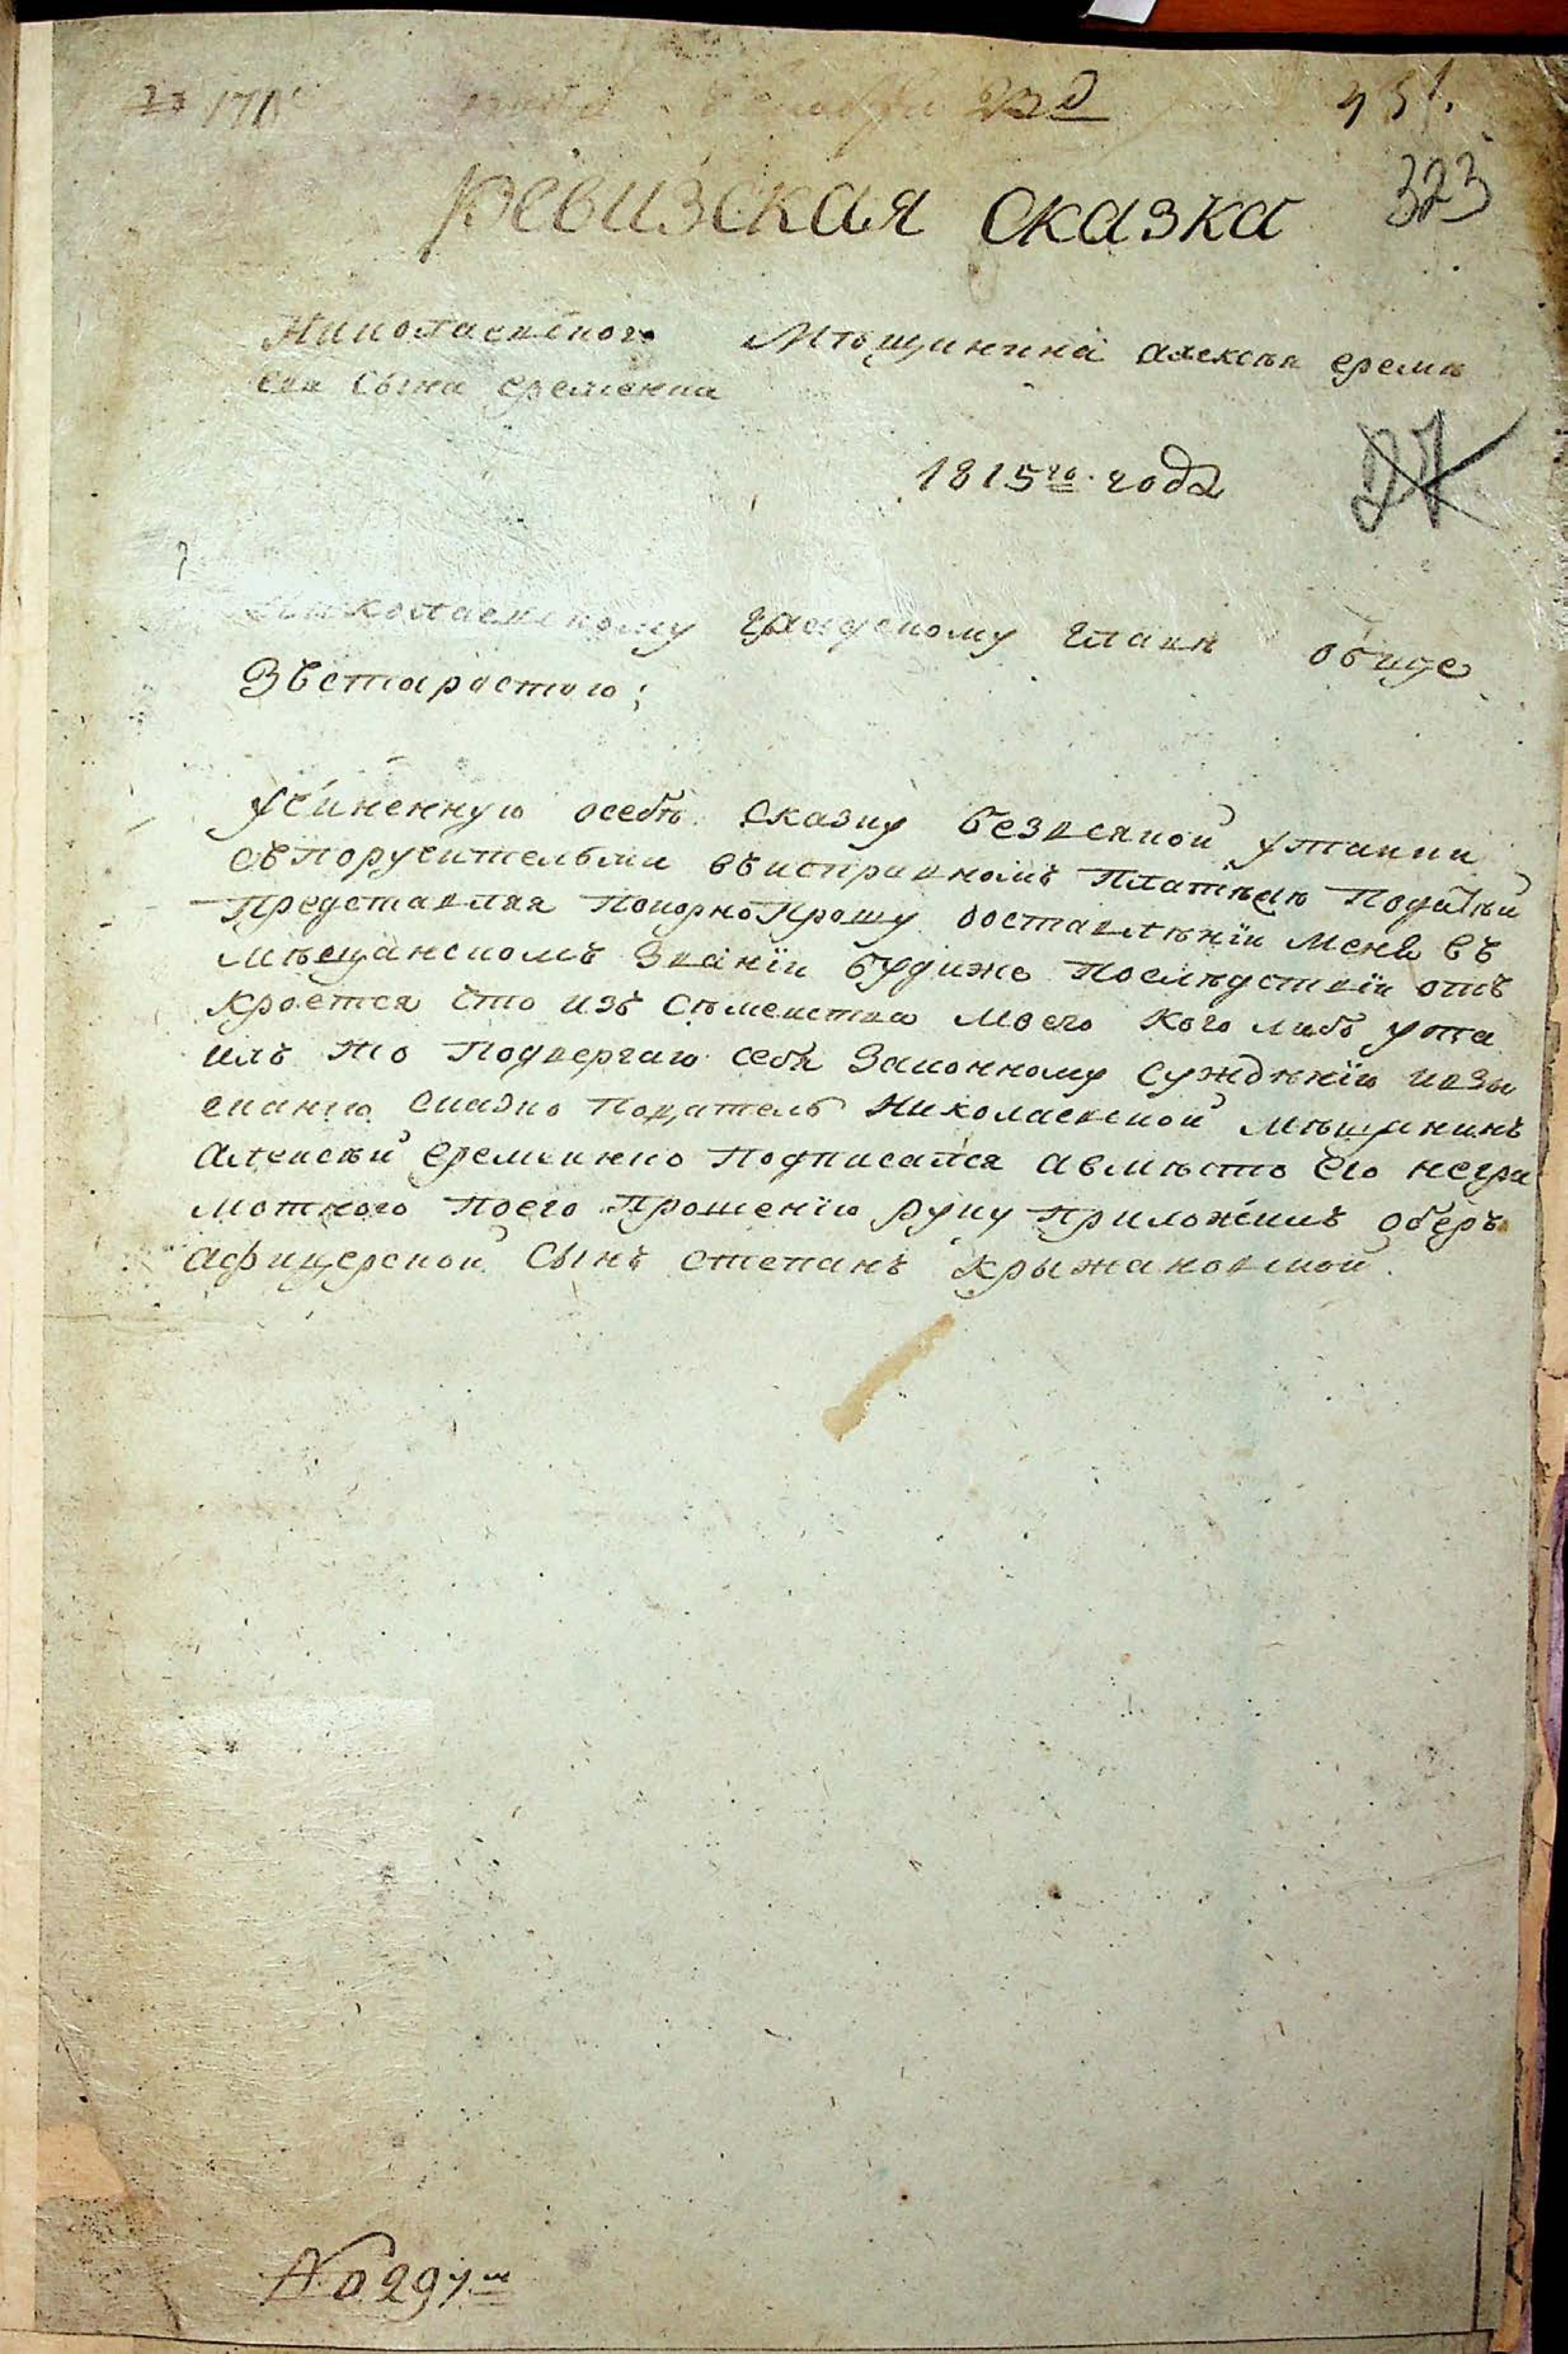 171
23 д
451.
323
Ревизская Сказка
Николаевского Мѣщинина Алексѣя еремѣ
ева Сына еременка
1815го. года
27
Николаевскому градскому главѣ обще
Зъстаростою;
Учиненную осебѣ сказку безвсякой утайки
съпоручительми въисправномъ платѣжѣ податѣй
представляя покорно прошу ооставлѣнїи меня въ
мѣщанскомъ званїи будиже послѣдствїи отъ
кроется что изъ сѣмейства моего кого либо ута
илъ то подвергаю себя законному суждѣнїю ивзы
сканию сказко податель Николаевской мѣщанинъ
Алексѣй еременко подписался авмѣсто его негра
мотного поего прошенїю руку приложилъ оберъ
афицерской сынъ степанъ крыжановской.
No 297м